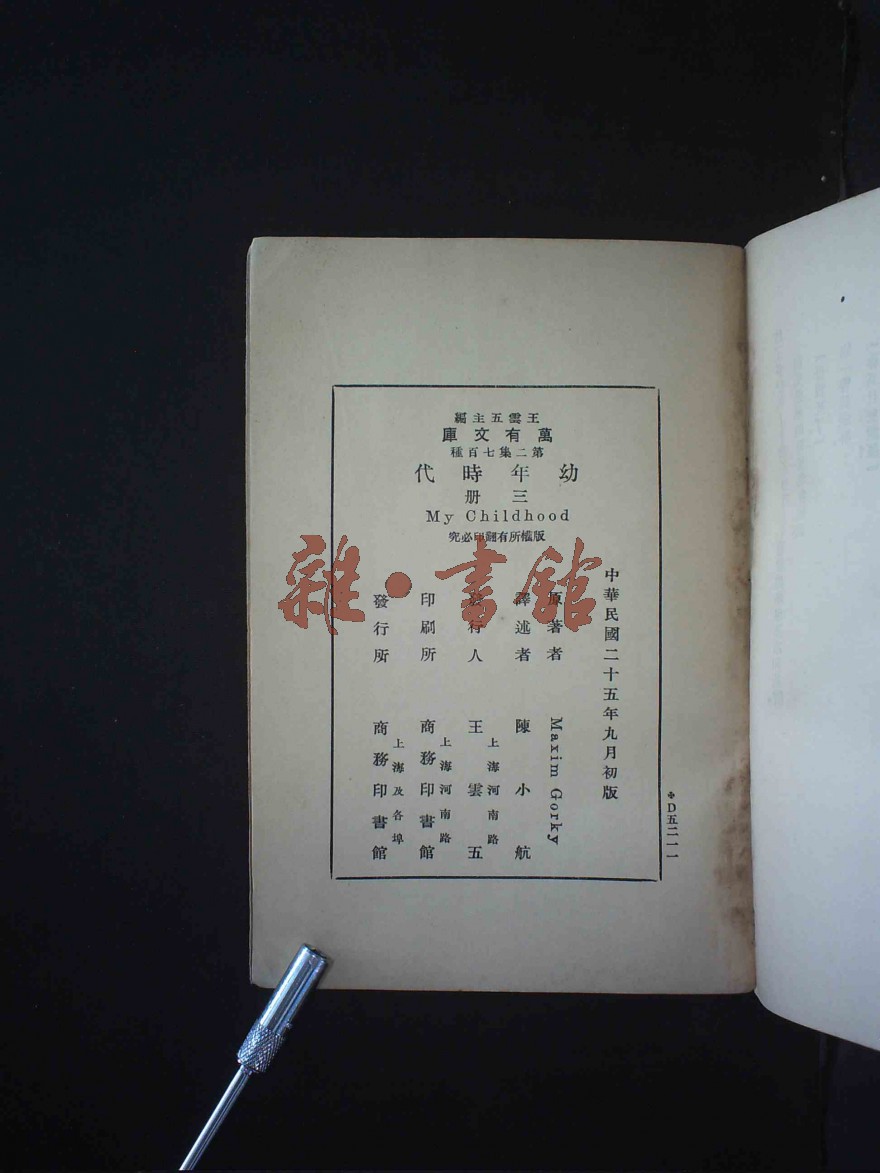 王雲五主編
萬有文庫
第二集七百種
幼年時代
三册
My Childhood
版權所有翻印必究
中華民國二十五年九月初版
原著者 Maxim Gorky
譯述者 陳小航
發行人 王雲五
上海河南路
印刷所 商務印書館
上海河南路
發行所 商務印書館
上海及各埠
雜·書館